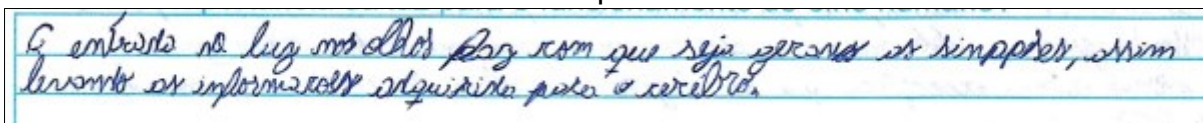 A entrada na luz nos olhos faz com que seja geranos as sinappses, assim
levando as informacoes adquirida para o cerebro.